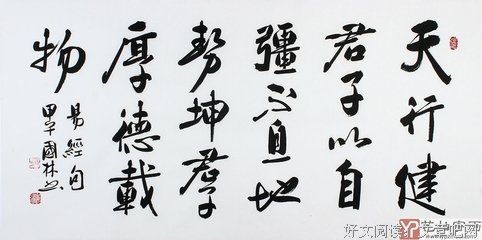 天行健
君子以自
彊不息地
勢坤君子
厚德載
物
易經句
甲午國林书
好文阅读